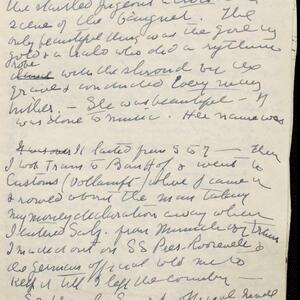 the startled pigeons
scene of the banquet. The
only beautiful thing was the girl in
gold & a halo who did a rythmic
robe
with the shroud by the
grave & conducted Everyman
hither. — She was beautiful — It
was done to music. Her name was
It lasted from 5 to 7 — then
I took Tram to Banhof & went to
Customs (Zollampt) where I came in
& rowed about the man taking
my money declaration away when
I entered Salz. from Munich by train
I made out on SS Pres. Roosevelt &
the German official told me to
keep it till I left the country —